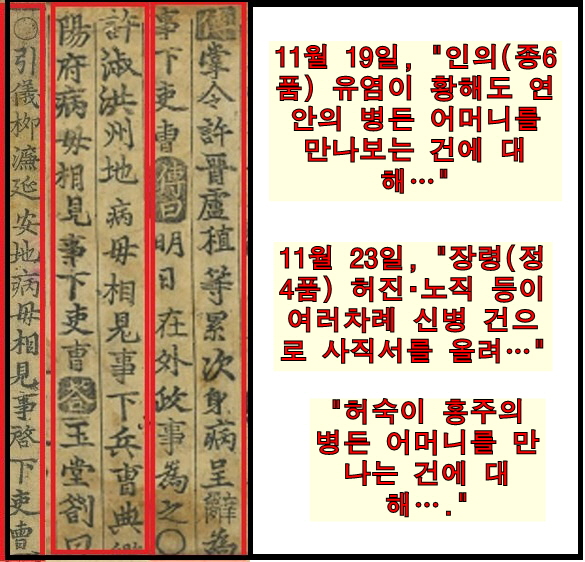 掌令許晋盧稙等累次身病呈辭爲
事下吏曹傳曰明日在外政事爲之○
許淑洪州地病母相見事下兵曹典
陽府病母相見事下吏曹答玉堂劄曰
○引儀柳濂延安地病母相見事啓下吏曹
11월 19일, "인의(종6
품) 유염이 황해도 연
안의 병든 어머니를
만나보는 건에 대
해…"
11월 23일, "장령(정
4품) 허진·노직 등이
여러차례 신병 건으
로 사직서를 올려…"
"허숙이 홍주의
병든 어머니를 만
나는 건에 대
해…."